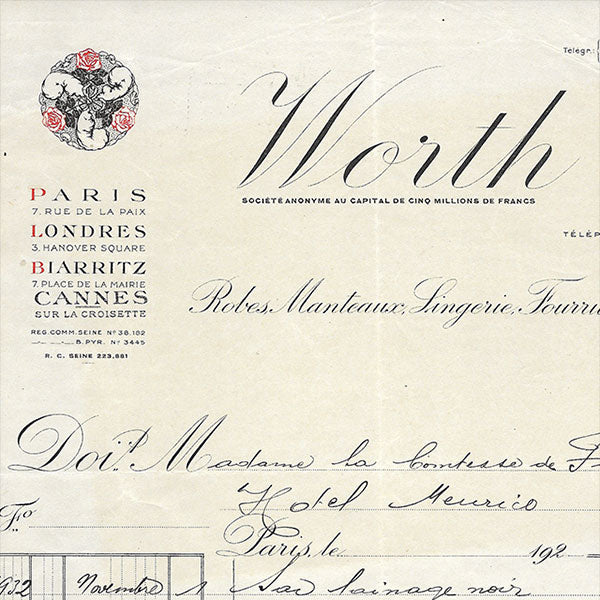 Télégr.:
Worth
SOCIÉTÉ ANONYME AU CAPITAL DE CINQ MILLIONS DE FRANCS
TÉLÉP
PARIS
7. RUE DE LA PAIX
LONDRES
3. HANOVER SQUARE
BIARRITZ
7. PLACE DE LA MAIRIE
CANNES
SUR LA CROISETTE
REG. COMM. SEINE Nº 38.182
B. PYR. Nº 3445
R. C. SEINE 223,881
Robes, Manteaux, Lingerie, Fourru
Doit Madame la Comtesse de F
Hotel Meurice
Fo
Paris, le 192
1932 Novembre 1 Sac lainage noir